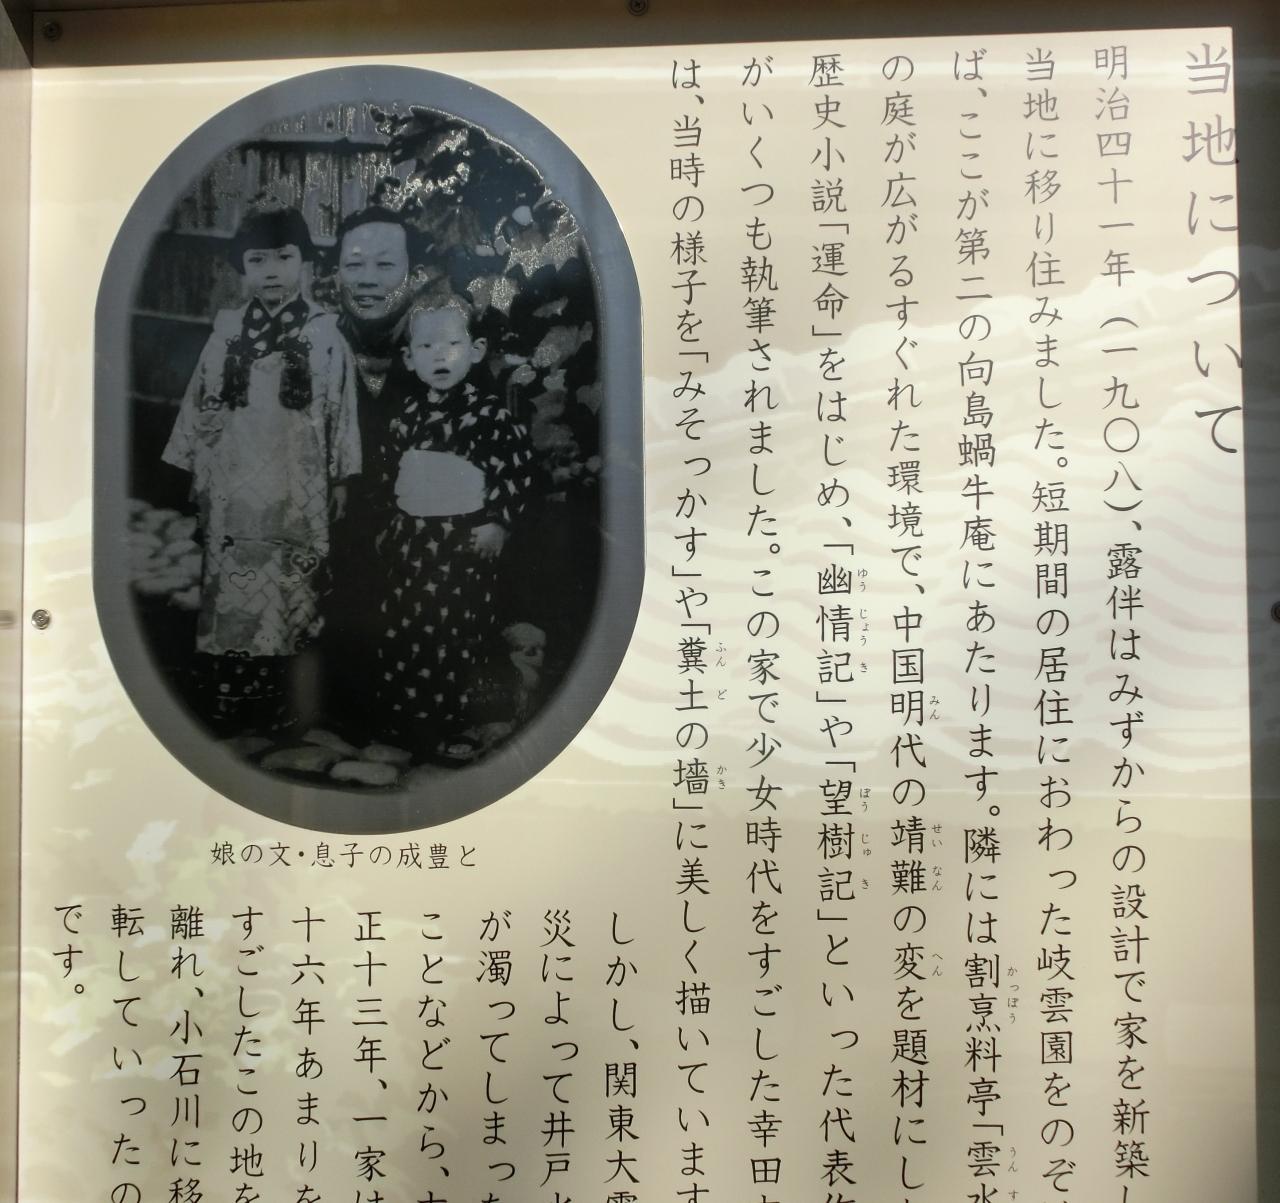 当地について
明治四十一年(一九〇八)、露伴はみずからの設計で家を新築し
当地に移り住みました。短期間の居住におわった岐雲園をのぞ
ば、ここが第二の向島蝸牛庵にあたります。隣には割烹料亭「雲水
かっぽう
うん
の庭が広がるすぐれた環境で、中国明代の靖難の変を題材にし
みん
せいなん
へん
歴史小説「運命」をはじめ、「幽情記」や「望樹記」といった代表作
ゆうじょうき
ぼうじゅき
がいくつも執筆されました。この家で少女時代をすごした幸田
は、当時の様子を「みそっかす」や「糞土の墻」に美しく描いています
ふんど
かき
娘の文・息子の成豊と
しかし、関東大震
災によって井戸水
が濁ってしまった
ことなどから、大
正十三年、一家は
十六年あまりを
すごしたこの地を
離れ、小石川に移
転していったの
です。